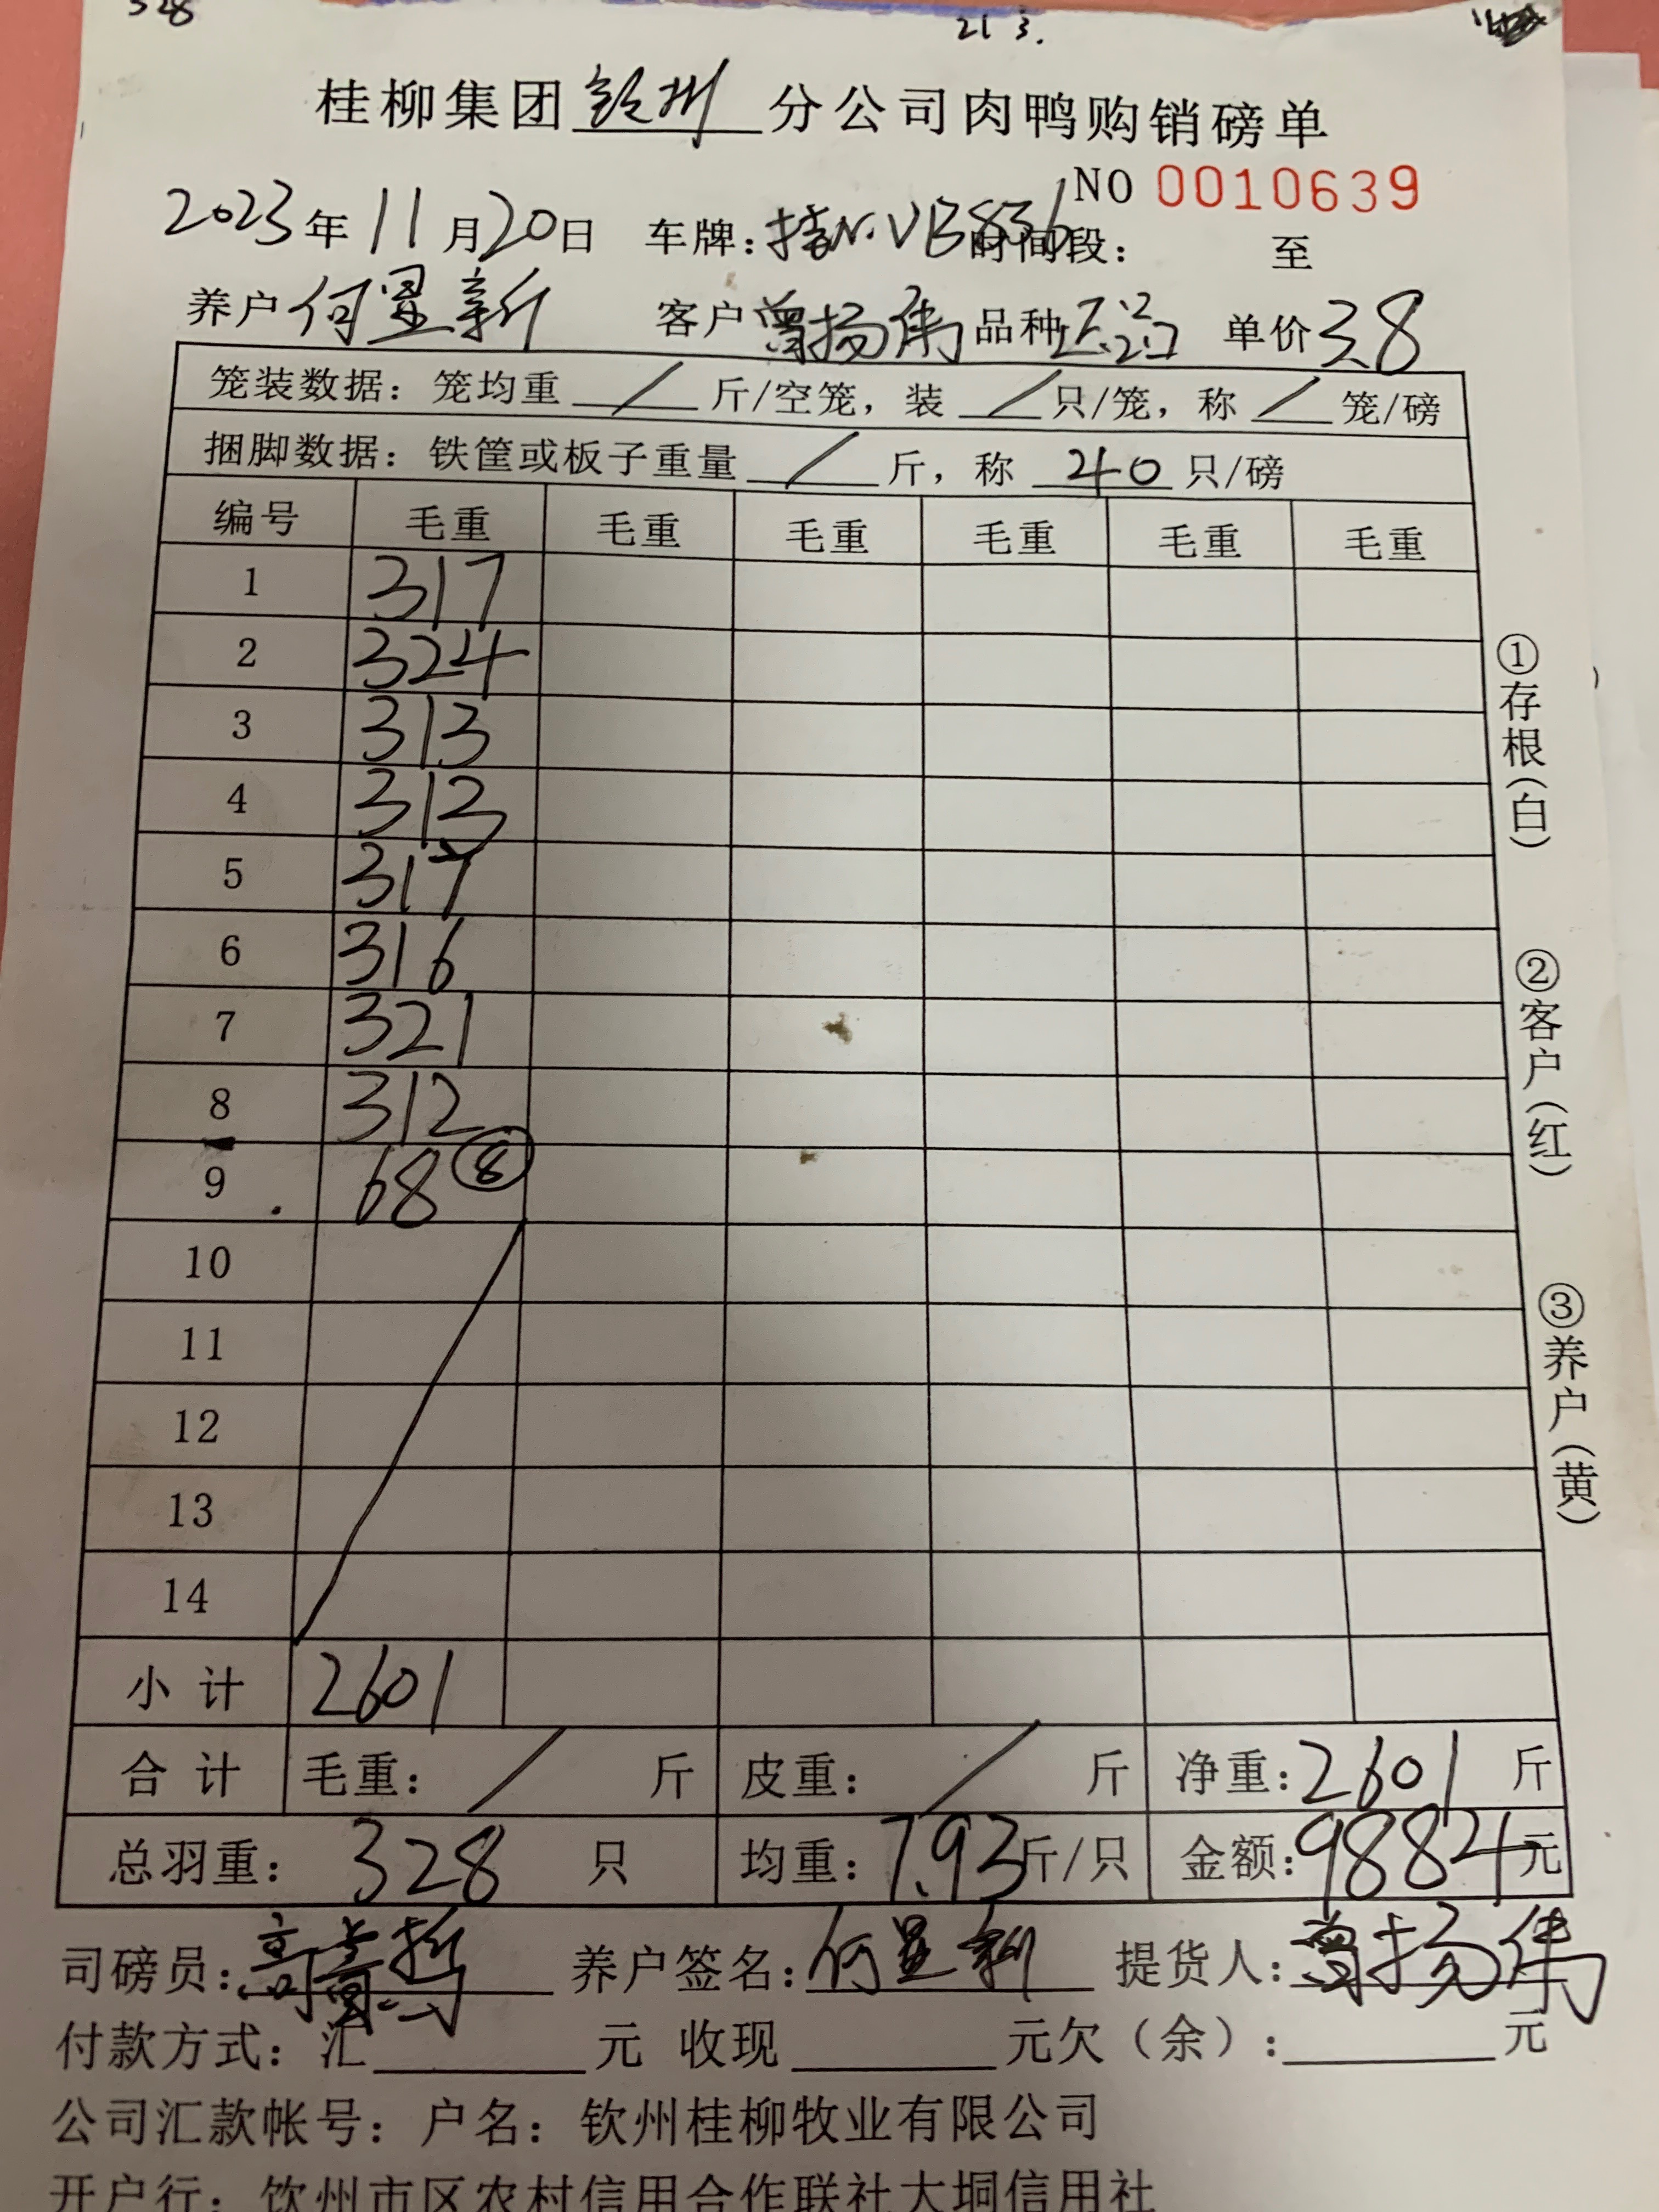 328 213.
桂柳集团钦州分公司肉鸭购销磅单
NO 0010639
2023年11月20日 车牌：桂N.VB836 时间段： 至
养户何显新 客户曾扬伟 品种 单价3.8
笼装数据：笼均重 / 斤/空笼，装 / 只/笼，称 / 笼/磅
捆脚数据：铁筐或板子重量 / 斤，称 40 只/磅
编号 毛重 毛重 毛重 毛重 毛重 毛重
1 317
2 324
3 313
4 313
5 317
6 316
7 321
8 312
9 68 ⑧
10
11
12
13
14
小计 2601
合计 毛重： / 斤 皮重： / 斤 净重：2601 斤
总羽重： 328 只 均重：7.93斤/只 金额：9884元
司磅员： 养户签名：何显新 提货人：曾扬伟
付款方式：汇 元 收现 元欠（余）： 元
公司汇款帐号：户名：钦州桂柳牧业有限公司
开户行：钦州市区农村信用合作联社大垌信用社
①存根（白）
②客户（红）
③养户（黄）